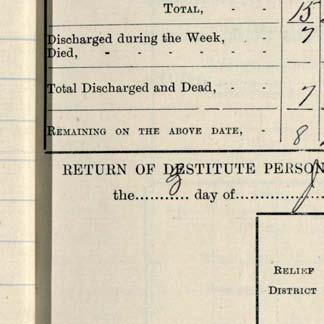 TOTAL, - - 15
Discharged during the Week, - 7
Died, - - - - -
Total Discharged and Dead, - 7
REMAINING ON THE ABOVE DATE, - 8
RETURN OF DESTITUTE PERSON
the............ day of
RELIEF
DISTRICT